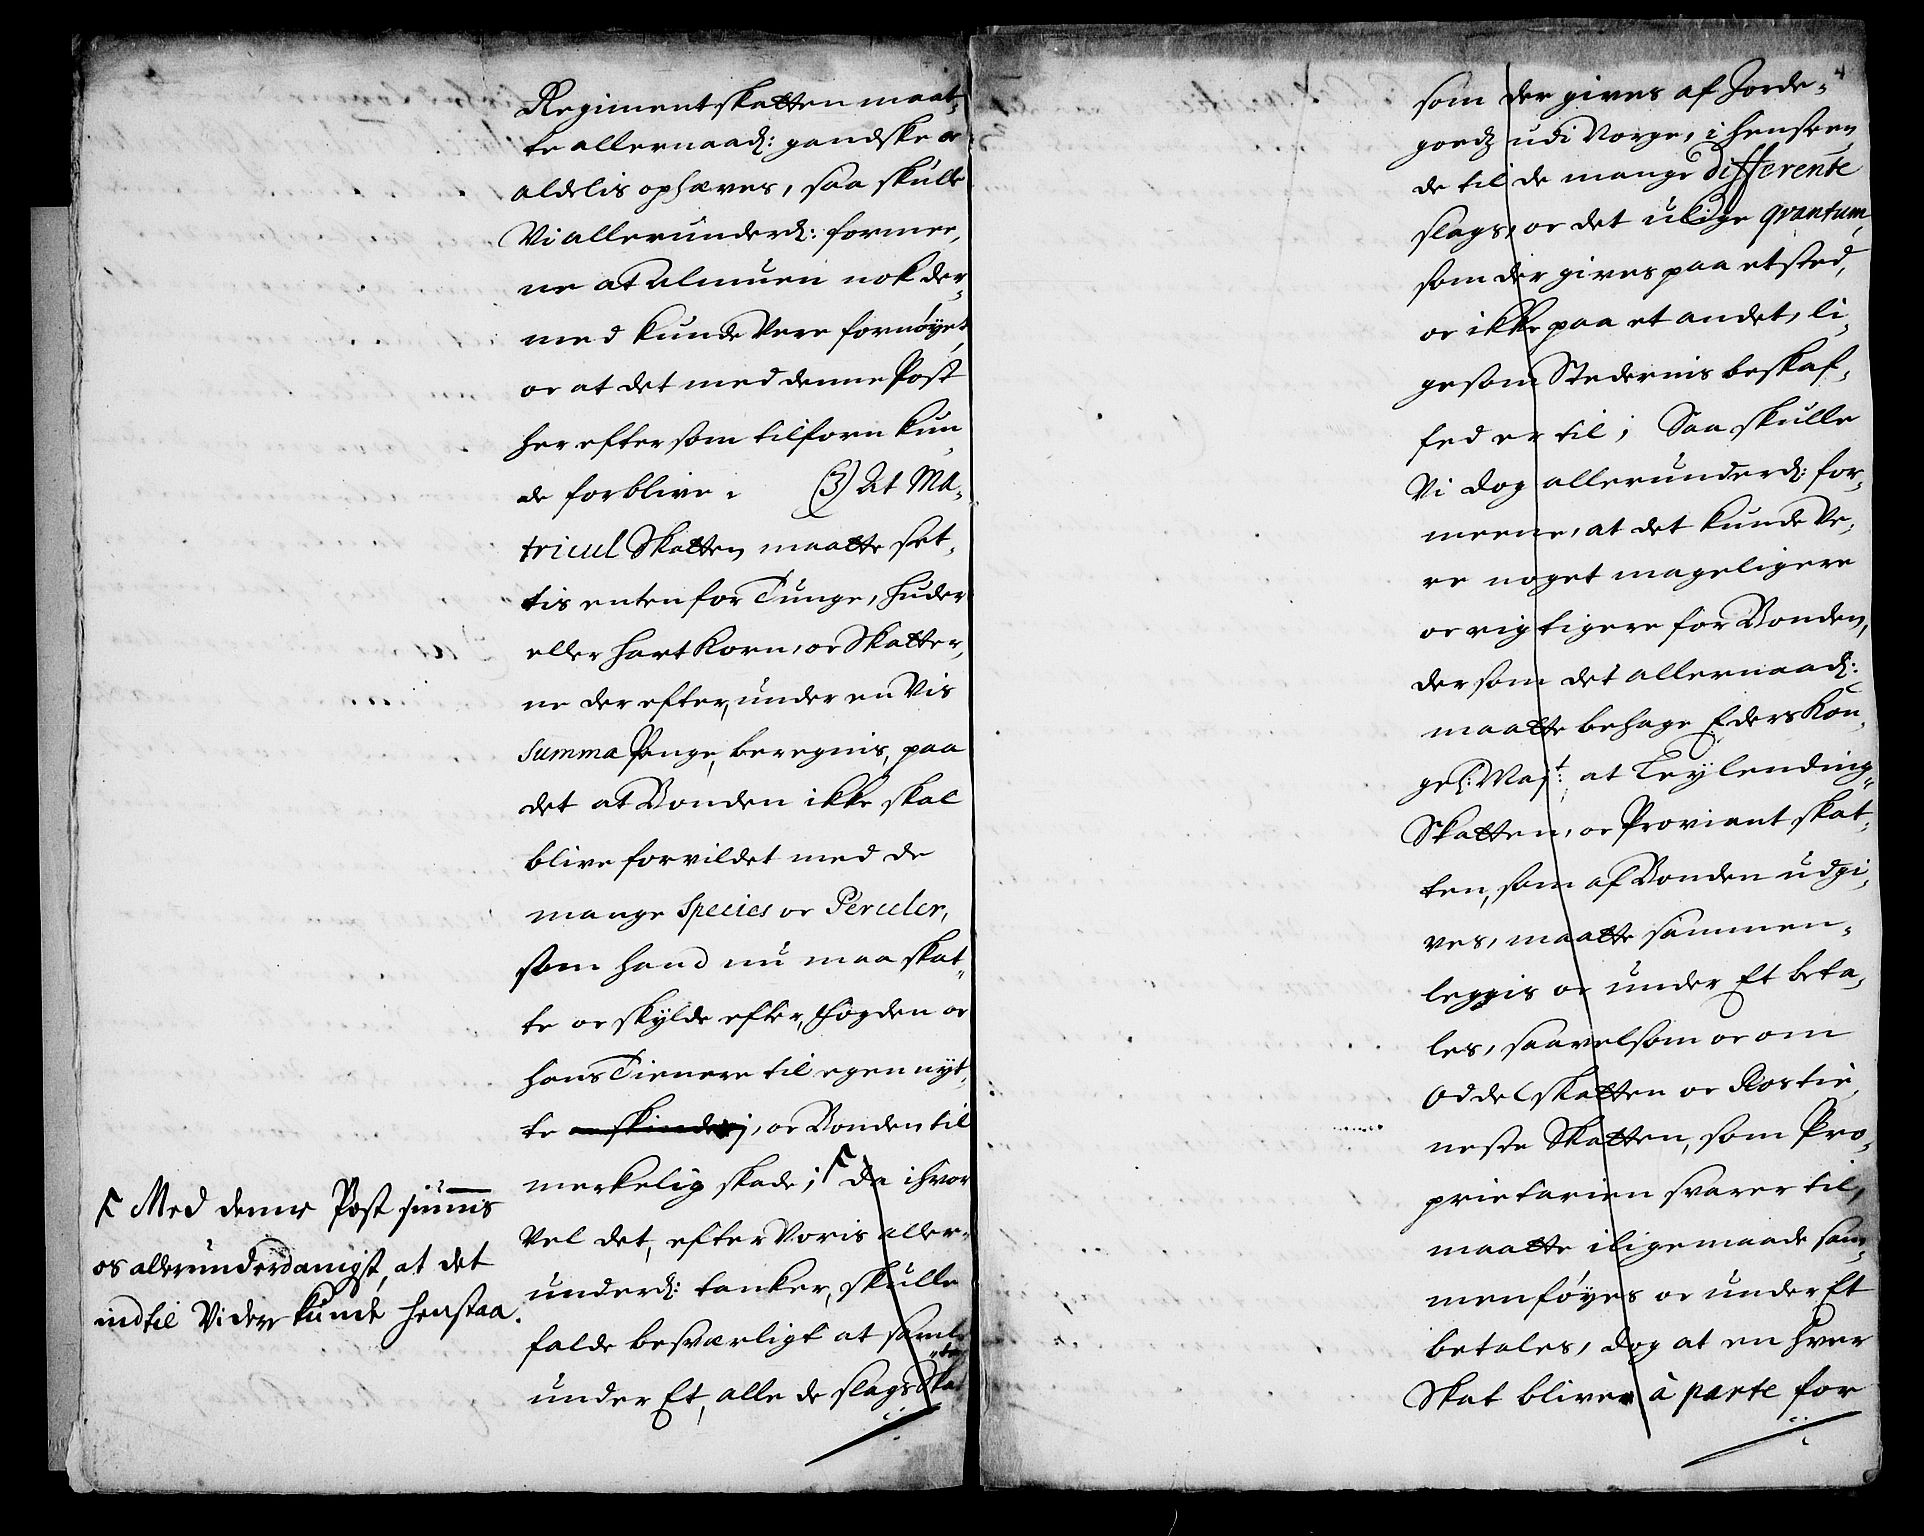 Regimentskatten maat-
te allernaad: gandske oc
aldelis ophæves, saa skulle
Vi allerunderd: formee-
ne at Almuen nok der-
med kunde Vere fornøyet,
oc at det med denne Post
her efter som tilforn kun-
de forblive. (3) At Ma-
tricul Skatten maatte set-
tis enten for Tunge, huder
eller hart Korn, oc Skatter-
ne der efter, under en Vis
Summa Penge, beregnis, paa
det at Bonden ikke skal
blive forvildet med de
mange Species oc Perceler,
som hand nu maa skat-
te oc skylde efter, fogden oc
hans Tienere til egen nyt-
te oc skinderj, oc Bonden til
merkelig skade; Γ Da ihvor
Vel det, efter Voris aller-
underd: tanker, skulle
falde besværligt at samle
under Et, alle de slags Skat-
ter
Γ Med denne Post siunis
os allerunderdanigst, at det
indtil Videre kunde henstaa.
4
som der gives af Jorde-
goedz udi Norge, i henseen-
de til de mange differente
slags, oc det ulige qvantum,
som der gives paa et sted,
oc ikke paa et andet, li-
gesom Stedernis beskaf-
fed er til; Saa skulle
Vi dog allerunderd: for-
meene, at det kunde Ve-
re noget mageligere
oc rigtigere for Bonden,
dersom det allernaad:
maatte behage Eders Kon-
gel: Maj:t, at Leylending-
Skatten, oc Proviant skat-
ten, som af Bonden udgi-
ves, maatte sammen-
leggis oc under Et beta-
les, saavelsom oc om
Oddel skatten oc Rostie-
neste Skatten, som Pro-
prietarien svarer til,
maatte iligemaade sam-
menføyes oc under Et
betales, dog at en hver
Skat bliver à parte for